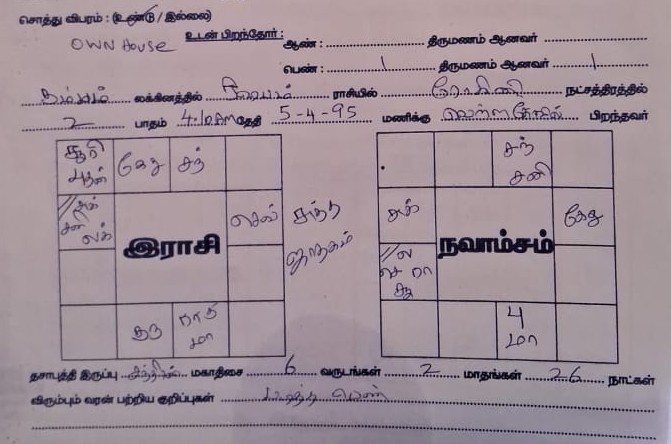 சொத்து விபரம் : (உண்டு / இல்லை)
OWN House உடன் பிறந்தோர் : ஆண் : திருமணம் ஆனவர்
பெண் : 1 திருமணம் ஆனவர் 1
கும்பம் லக்கினத்தில் ரிஷபம் ராசியில் ரோகிணி நட்சத்திரத்தில்
2 பாதம் தேதி 5-4-95 மணிக்கு பிறந்தவர்
சூரி
புதன் கேது சந்
சுக்
சனி
லக் இராசி செவ் சுத்த
ஜாதகம்
குரு ராகு
மா
சந்
சனி
சுக் நவாம்சம் கேது
ல
செ ரா
சூ
பு
மா
தசாபுத்தி இருப்பு சந்திரன் மகாதிசை 6 வருடங்கள் 2 மாதங்கள் 26 நாட்கள்
விரும்பும் வரன் பற்றிய குறிப்புகள் படித்த பெண்